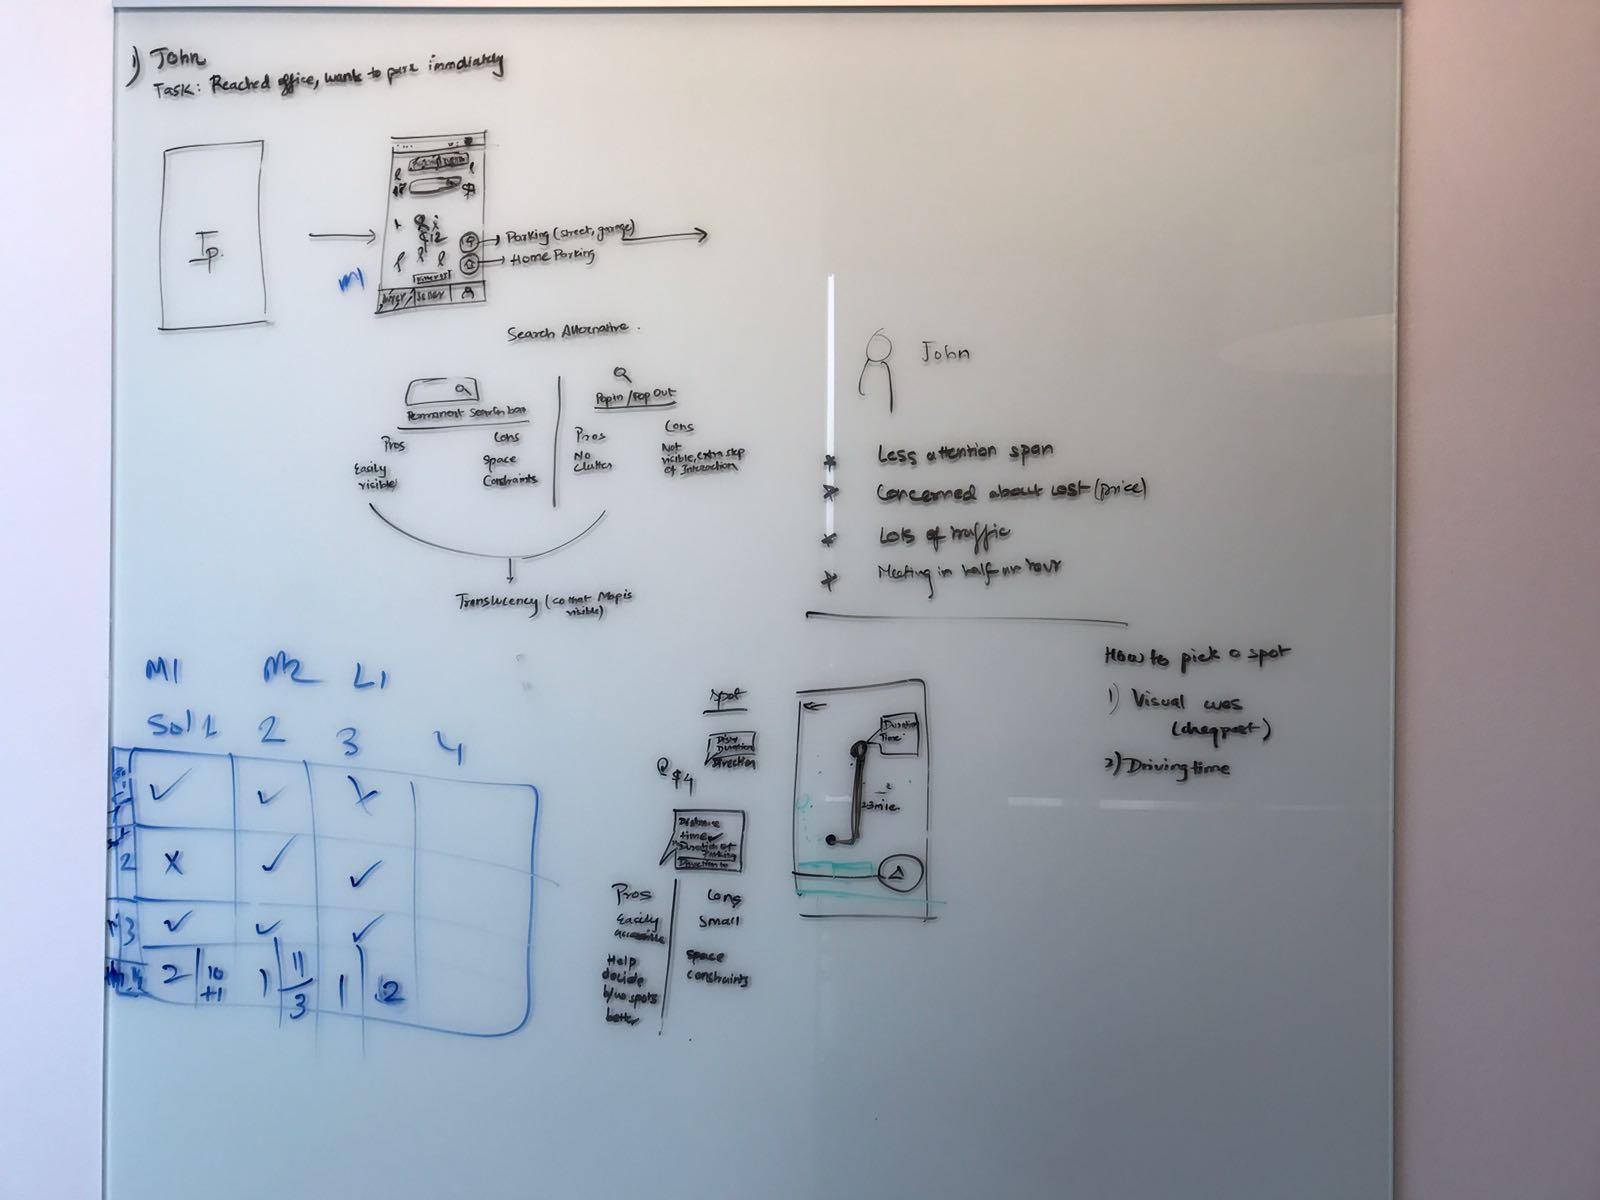 1) John
Task: Reached office, wants to park immdiately
P.
$12
Filters
Seller
Parking (street, garage)
Home Parking
M1
Search Alternative.
Permanent Search bar
Pros
Cons
Easily
visible
Space
Constraints
Pop in / Pop Out
Pros
Cons
No
Clutter
Not
visible, extra step
of Interaction
Translucency (so that Map is
visible)
John
Less attention span
Concerned about cost (price)
Lots of traffic
Meeting in half an hour
How to pick a spot
1) Visual cues
(cheapest)
2) Driving time
M1 M2 L1
Sol 1 2 3 4
2
3
2 10
+1
1 11
3
1 2
Spot
Duration
Direction
$4
Distance
time
Duration of
Parking
Direction to
Pros
Cons
Easily
accessible
Small
Help
decide
b/w spots
better
space
constraints
Duration
Time
2.3 mile.